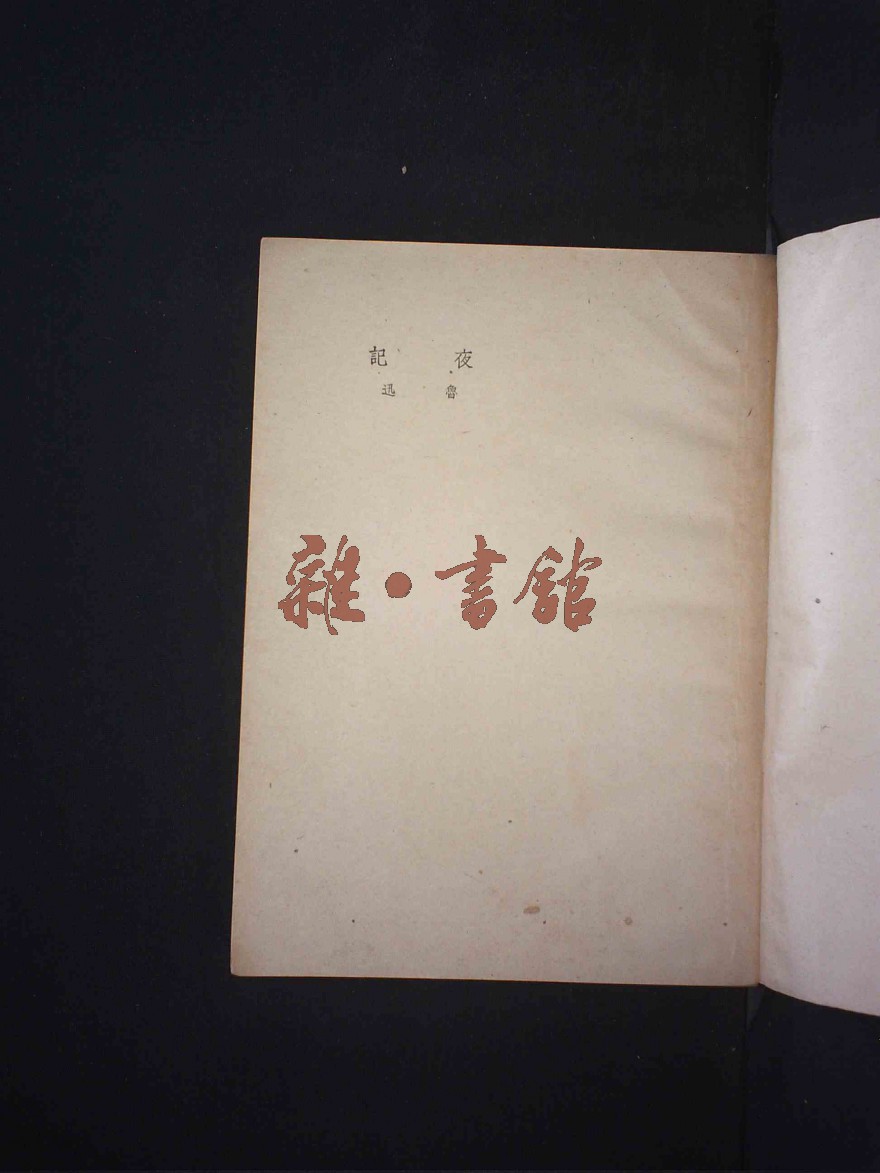 夜記
魯迅
雜·書館